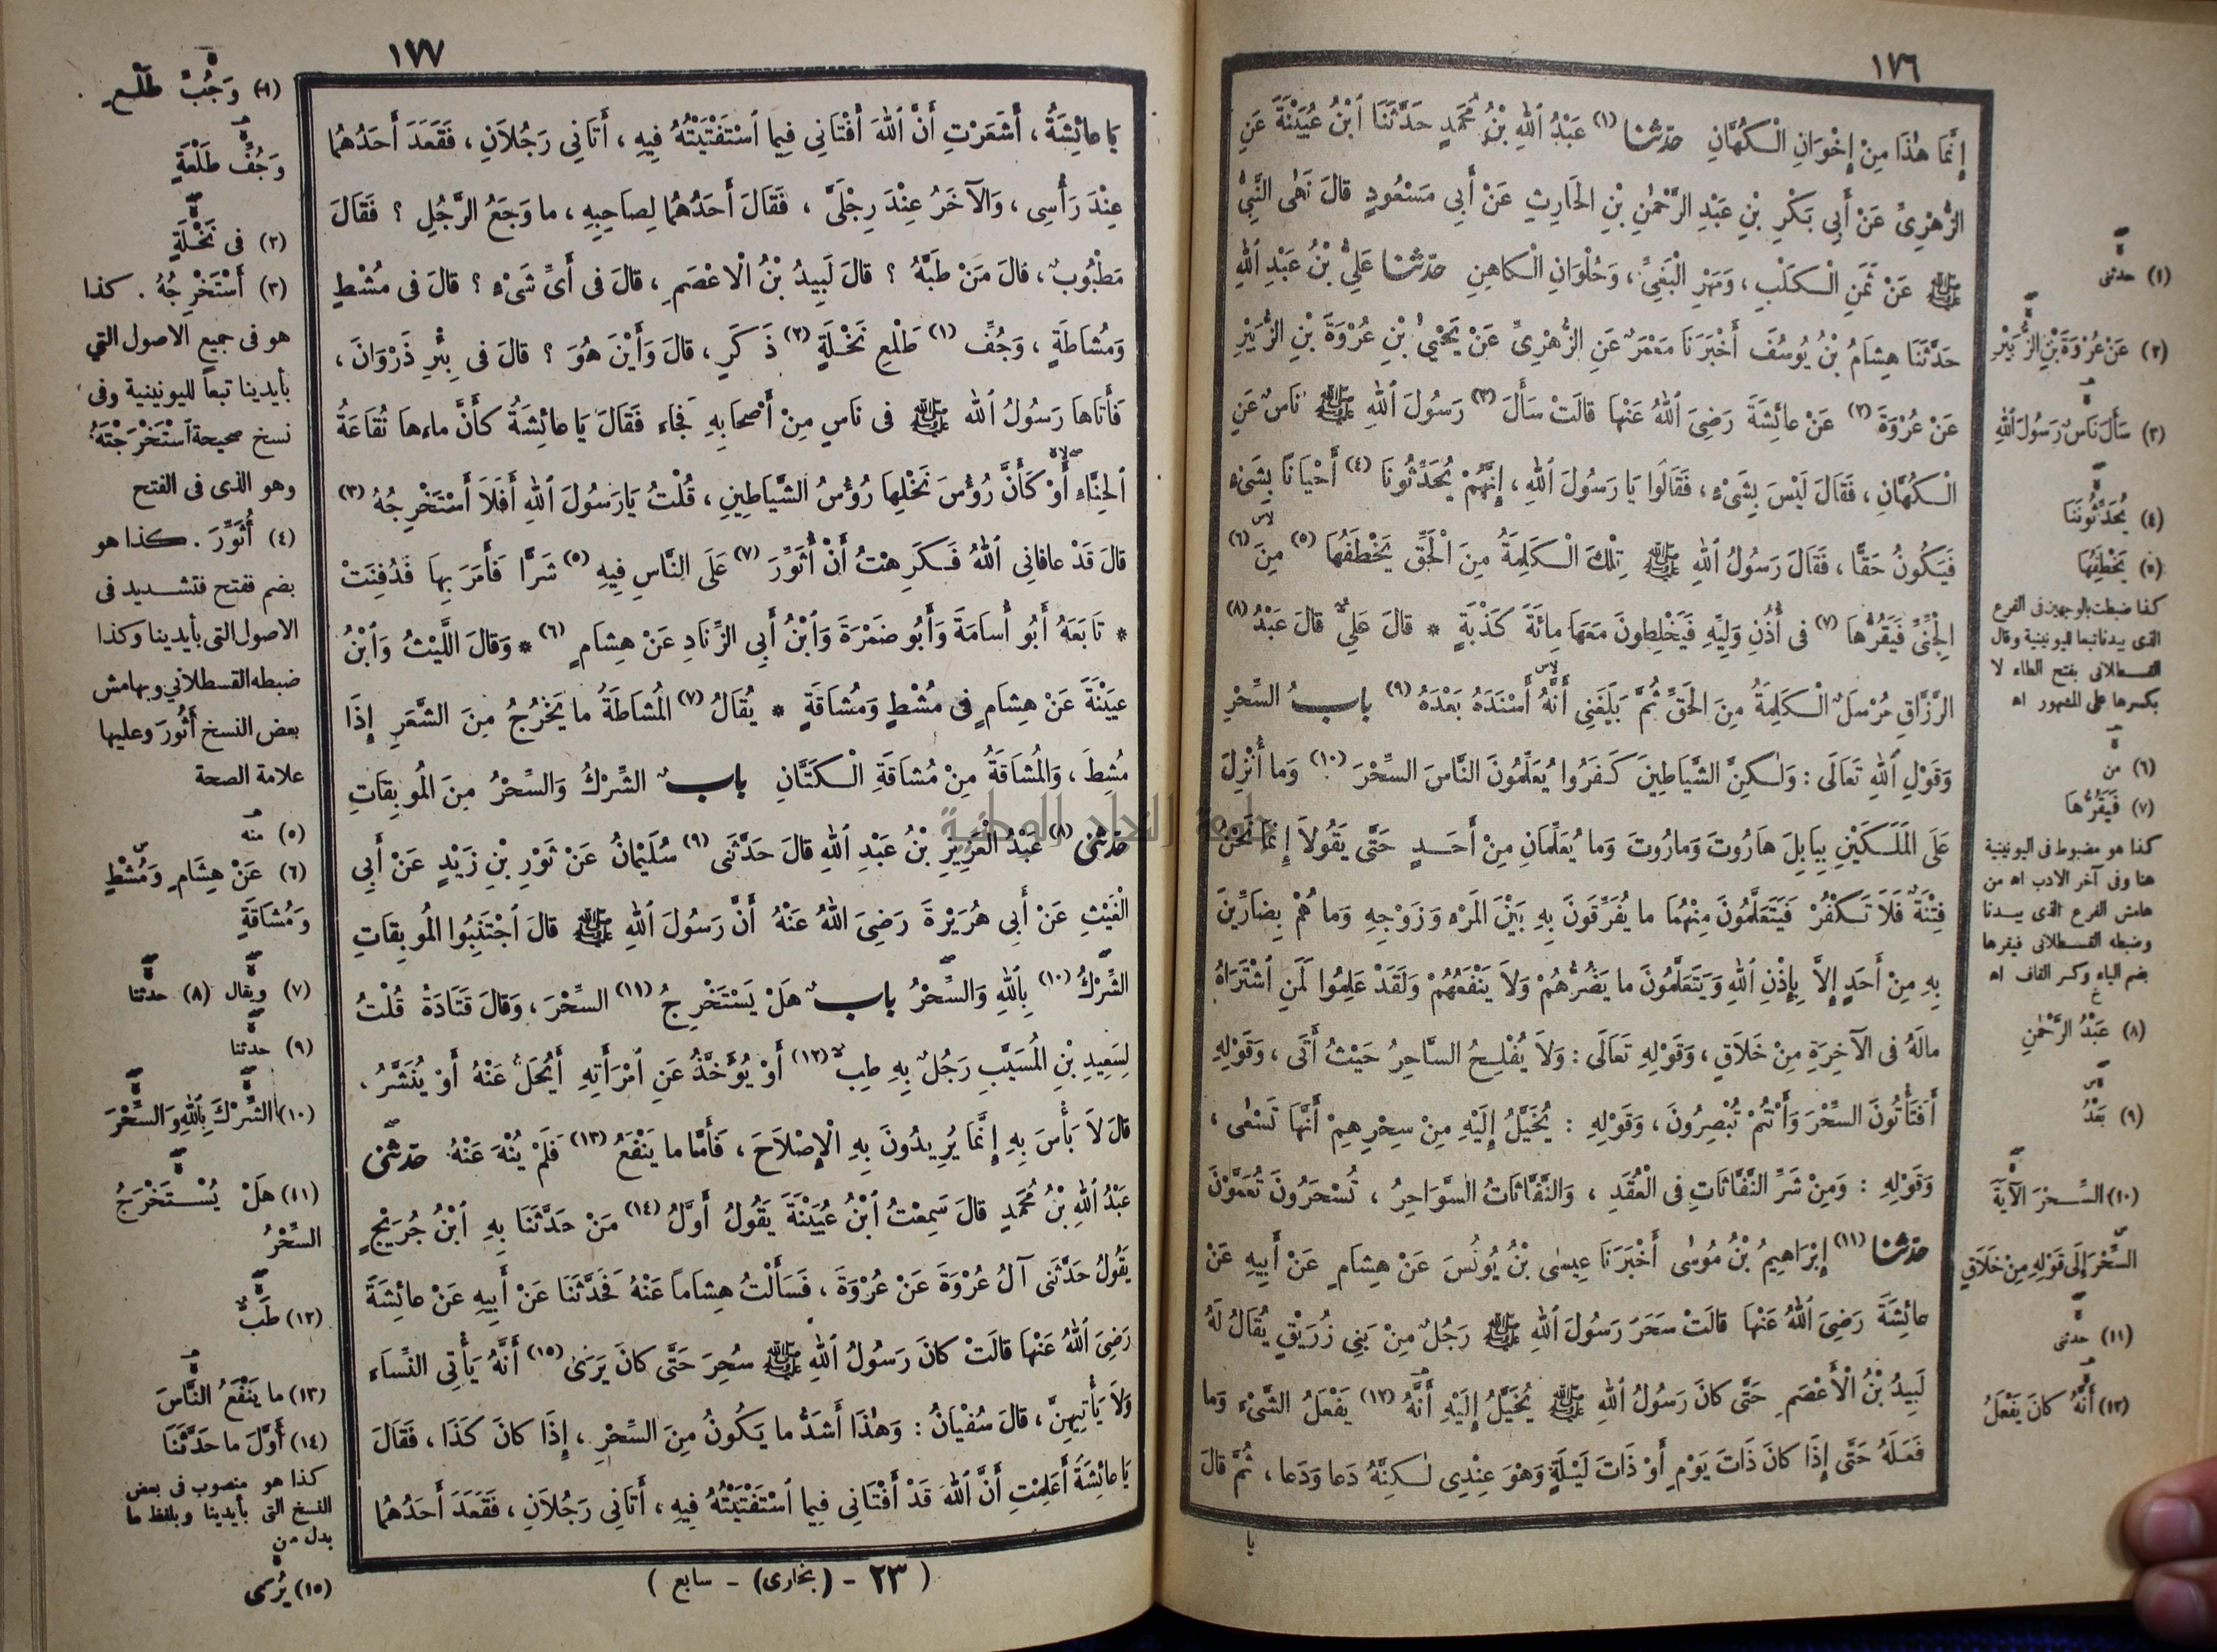 ١٧٦
إِنَّمَا هٰذَا مِنْ إِخْوَانِ الْكُهَّانِ حدثنا (١) عَبْدُ اللهِ بْنُ مُحَمَّدٍ حَدَّثَنَا ابْنُ عُيَيْنَةَ عَنِ
الزُّهْرِيِّ عَنْ أَبِي بَكْرِ بْنِ عَبْدِ الرَّحْمٰنِ بْنِ الحَارِثِ عَنْ أَبِي مَسْعُودٍ قالَ نَهٰى النَّبِيُّ
ﷺ عَنْ ثَمَنِ الْكَلْبِ ، وَمَهْرِ الْبَغِيِّ ، وَحُلْوَانِ الْكاهِنِ حدثنا عَلِيُّ بْنُ عَبْدِ اللهِ
حَدَّثَنَا هِشَامُ بْنُ يُوسُفَ أَخْبَرَنَا مَعْمَرٌ عَنِ الزُّهْرِيِّ عَنْ يَحْيٰى بْنِ عُرْوَةَ بْنِ الزُّبَيْرِ
عَنْ عُرْوَةَ (٢) عَنْ عائِشَةَ رَضِيَ اللهُ عَنْهَا قالَتْ سَأَلَ (٣) رَسُولَ اللهِ ﷺ نَاسٌ عَنِ
الْكُهَّانِ ، فَقَالَ لَيْسَ بِشَيْءٍ ، فَقَالُوا يَا رَسُولَ اللهِ ، إِنَّهُمْ يُحَدِّثُونَا (٤) أَحْيَانًا بِشَيْءٍ
فَيَكُونُ حَقًّا ، فَقَالَ رَسُولُ اللهِ ﷺ تِلْكَ الْكَلِمَةُ مِنَ الْحَقِّ يَخْطَفُهَا (٥) مِنَ (٦)
الْجِنِّيِّ فَيَقُرُّهَا (٧) فِي أُذُنِ وَلِيِّهِ فَيَخْلِطُونَ مَعَهَا مِائَةَ كَذْبَةٍ * قالَ عَلِيٌّ قالَ عَبْدُ (٨)
الرَّزَّاقِ مُرْسَلٌ الْكَلِمَةُ مِنَ الحَقِّ ثُمَّ بَلَغَنِي أَنَّهُ أَسْنَدَهُ بَعْدَهُ (٩) باب السِّحْرِ
وَقَوْلِ اللهِ تَعَالَى : وَلٰكِنَّ الشَّيَاطِينَ كَفَرُوا يُعَلِّمُونَ النَّاسَ السِّحْرَ (١٠) وَما أُنْزِلَ
عَلَى المَلَكَيْنِ بِبَابِلَ هَارُوتَ وَمارُوتَ وَما يُعَلِّمَانِ مِنْ أَحَدٍ حَتَّى يَقُولاَ إِنَّمَا نَحْنُ
فِتْنَةٌ فَلاَ تَكْفُرْ فَيَتَعَلَّمُونَ مِنْهُمَا ما يُفَرِّقُونَ بِهِ بَيْنَ المَرْءِ وَزَوْجِهِ وَما هُمْ بِضَارِّينَ
بِهِ مِنْ أَحَدٍ إِلاَّ بِإِذْنِ اللهِ وَيَتَعَلَّمُونَ ما يَضُرُّهُمْ وَلاَ يَنْفَعُهُمْ وَلَقَدْ عَلِمُوا لَمَنِ اشْتَرَاهُ
مالَهُ فِي الآخِرَةِ مِنْ خَلاَقٍ ، وَقَوْلِهِ تَعَالَى : وَلاَ يُفْلِحُ السَّاحِرُ حَيْثُ أَتَى ، وَقَوْلِهِ
أَفَتَأْتُونَ السِّحْرَ وَأَنْتُمْ تُبْصِرُونَ ، وَقَوْلِهِ : يُخَيَّلُ إِلَيْهِ مِنْ سِحْرِهِمْ أَنَّهَا تَسْعٰى ،
وَقَوْلِهِ : وَمِنْ شَرِّ النَّفَّاثَاتِ فِي الْعُقَدِ ، وَالنَّفَّاثَاتُ السَّوَاحِرُ ، تُسْحَرُونَ تُعَمَّوْنَ
حدثنا (١١) إِبْرَاهِيمُ بْنُ مُوسٰى أَخْبَرَنَا عِيسٰى بْنُ يُونُسَ عَنْ هِشَامٍ عَنْ أَبِيهِ عَنْ
عائِشَةَ رَضِيَ اللهُ عَنْهَا قالَتْ سَحَرَ رَسُولَ اللهِ ﷺ رَجُلٌ مِنْ بَنِي زُرَيْقٍ يُقَالُ لَهُ
لَبِيدُ بْنُ الْأَعْصَمِ حَتَّى كانَ رَسُولُ اللهِ ﷺ يُخَيَّلُ إِلَيْهِ أَنَّهُ (١٢) يَفْعَلُ الشَّيْءَ وَما
فَعَلَهُ حَتَّى إِذَا كانَ ذَاتَ يَوْمٍ أَوْ ذَاتَ لَيْلَةٍ وَهْوَ عِنْدِي لٰكِنَّهُ دَعا وَدَعا ، ثُمَّ قالَ
يا
(١) حدثنى
(٢) عَنْ عُرْوَةَ بْنِ الزُّبَيْرِ
(٣) سَأَلَ نَاسٌ رَسُولَ اللهِ
(٤) يُحَدِّثُونَنَا
(٥) يَخْطِفُهَا
كذا ضبطت بالوجهين فى الفرع
الذى بيدنا تبعا لليونينية وقال
القسطلانى بفتح الطاء لا
بكسرها على المشهور اه
(٦) من
(٧) فَيَقُرُّهَا
كذا هو مضبوط فى اليونينية
هنا وفى آخر الادب اه من
هامش الفرع الذى بيدنا
وضبطه القسطلانى فيقرها
بضم الياء وكسر القاف اه
(٨) عَبْدُ الرَّحْمٰنِ
(٩) بَعْدُ
(١٠) السِّحْرَ الآيَةَ
السِّحْرَ إِلَى قَوْلِهِ مِنْ خَلاَقٍ
(١١) حدثنى
(١٢) أَنَّهُ كانَ يَفْعَلُ
١٧٧
يَا عائِشَةُ ، أَشَعَرْتِ أَنَّ اللهَ أَفْتَانِي فِيما اسْتَفْتَيْتُهُ فِيهِ ، أَتَانِي رَجُلاَنِ ، فَقَعَدَ أَحَدُهُما
عِنْدَ رَأْسِي ، وَالآخَرُ عِنْدَ رِجْلَيَّ ، فَقَالَ أَحَدُهُما لِصاحِبِهِ ، ما وَجَعُ الرَّجُلِ ؟ فَقَالَ
مَطْبُوبٌ ، قالَ مَنْ طَبَّهُ ؟ قالَ لَبِيدُ بْنُ الْأَعْصَمِ ، قالَ فى أَيِّ شَيْءٍ ؟ قالَ فى مُشْطٍ
وَمُشَاطَةٍ ، وَجُفِّ (١) طَلْعِ نَخْلَةٍ (٢) ذَكَرٍ ، قالَ وَأَيْنَ هُوَ ؟ قالَ فى بِئْرِ ذَرْوَانَ ،
فَأَتَاها رَسُولُ اللهِ ﷺ فى نَاسٍ مِنْ أَصْحَابِهِ فَجَاء فَقَالَ يَا عائِشَةُ كَأَنَّ ماءها نُقَاعَةُ
الْحِنَّاءِ أَوْ كَأَنَّ رُؤُسَ نَخْلِهَا رُؤُسُ الشَّيَاطِينِ ، قُلْتُ يَا رَسُولَ اللهِ أَفَلاَ أَسْتَخْرِجُهُ (٣)
قالَ قَدْ عافانِي اللهُ فَكَرِهْتُ أَنْ أُثَوِّرَ (٧) عَلَى النَّاسِ فِيهِ (٥) شَرًّا فَأَمَرَ بِهَا فَدُفِنَتْ
* تَابَعَهُ أَبُو أُسَامَةَ وَأَبُو ضَمْرَةَ وَابْنُ أَبِي الزِّنَادِ عَنْ هِشَامٍ (٦) * وَقالَ اللَّيْثُ وَابْنُ
عيَيْنَةَ عَنْ هِشَامٍ فِى مُشْطٍ وَمُشَاقَةٍ * يُقَالُ (٧) الْمُشَاطَةُ ما يَخْرُجُ مِنَ الشَّعَرِ إِذَا
مُشِطَ ، وَالْمُشَاقَةُ مِنْ مُشَاقَةِ الْكَتَّانِ باب الشِّرْكُ وَالسِّحْرُ مِنَ الْمُوبِقَاتِ
حدثنى (٨) عَبْدُ الْعَزِيزِ بْنُ عَبْدِ اللهِ قالَ حَدَّثَنِى (٩) سُلَيْمانُ عَنْ ثَوْرِ بْنِ زَيْدٍ عَنْ أَبِي
الْغَيْثِ عَنْ أَبِي هُرَيْرَةَ رَضِيَ اللهُ عَنْهُ أَنَّ رَسُولَ اللهِ ﷺ قالَ اجْتَنِبُوا الْمُوبِقَاتِ
الشِّرْكُ (١٠) بِاللهِ وَالسِّحْرُ باب هَلْ يَسْتَخْرِجُ (١١) السِّحْرَ ، وَقالَ قَتَادَةُ قُلْتُ
لِسَعِيدِ بْنِ الْمُسَيَّبِ رَجُلٌ بِهِ طِبٌّ (١٢) أَوْ يُؤَخَّذُ عَنِ امْرَأَتِهِ أَيُحَلُّ عَنْهُ أَوْ يُنَشَّرُ ،
قالَ لاَ بَأْسَ بِهِ إِنَّمَا يُرِيدُونَ بِهِ الْإِصْلاَحَ ، فَأَمَّا ما يَنْفَعُ (١٣) فَلَمْ يُنْهَ عَنْهُ حدثنى
عَبْدُ اللهِ بْنُ مُحَمَّدٍ قالَ سَمِعْتُ ابْنَ عُيَيْنَةَ يَقُولُ أَوَّلُ (١٤) مَنْ حَدَّثَنَا بِهِ ابْنُ جُرَيْجٍ
يَقُولُ حَدَّثَنِى آلُ عُرْوَةَ عَنْ عُرْوَةَ ، فَسَأَلْتُ هِشَاماً عَنْهُ فَحَدَّثَنَا عَنْ أَبِيهِ عَنْ عائِشَةَ
رَضِيَ اللهُ عَنْهَا قالَتْ كانَ رَسُولُ اللهِ ﷺ سُحِرَ حَتَّى كانَ يَرَى (١٥) أَنَّهُ يَأْتِى النِّسَاء
وَلاَ يَأْتِيهِنَّ ، قالَ سُفْيَانُ : وَهٰذَا أَشَدُّ ما يَكُونُ مِنَ السِّحْرِ ، إِذَا كانَ كَذَا ، فَقَالَ
يَا عائِشَةُ أَعَلِمْتِ أَنَّ اللهَ قَدْ أَفْتَانِي فِيما اسْتَفْتَيْتُهُ فِيهِ ، أَتَانِي رَجُلاَنِ ، فَقَعَدَ أَحَدُهُما
( ٢٣ - (بخارى) - سابع )
(١) وَجُبِّ طَلْعِ
وَجُفِّ طَلْعَةٍ
(٢) فى نَخْلَةٍ
(٣) أَسْتَخْرِجُهُ . كذا
هو فى جميع الاصول التي
بأيدينا تبعاً لليونينية وفى
نسخ صحيحة اسْتَخْرَجْتَهُ
وهو الذى فى الفتح
(٤) أُثَوِّرَ . كذا هو
بضم ففتح فتشديد فى
الاصول التى بأيدينا وكذا
ضبطه القسطلاني وبهامش
بعض النسخ أَثُورَ وعليها
علامة الصحة
(٥) منه
(٦) عَنْ هِشَامٍ وَمُشْطٍ
وَمُشَاقَةٍ
(٧) ويقال (٨) حدثنا
(٩) حدثنا
(١٠) الشِّرْكَ بِاللهِ وَالسِّحْرَ
(١١) هَلْ يُسْتَخْرَجُ
السِّحْرُ
(١٢) طَبٌّ
(١٣) ما يَنْفَعُ النَّاسَ
(١٤) أَوَّلَ ما حَدَّثَنَا
كذا هو منصوب فى بعض
النسخ التى بأيدينا وبلفظ ما
بدل من
(١٥) يُرَى
جامعة النجاح الوطنية